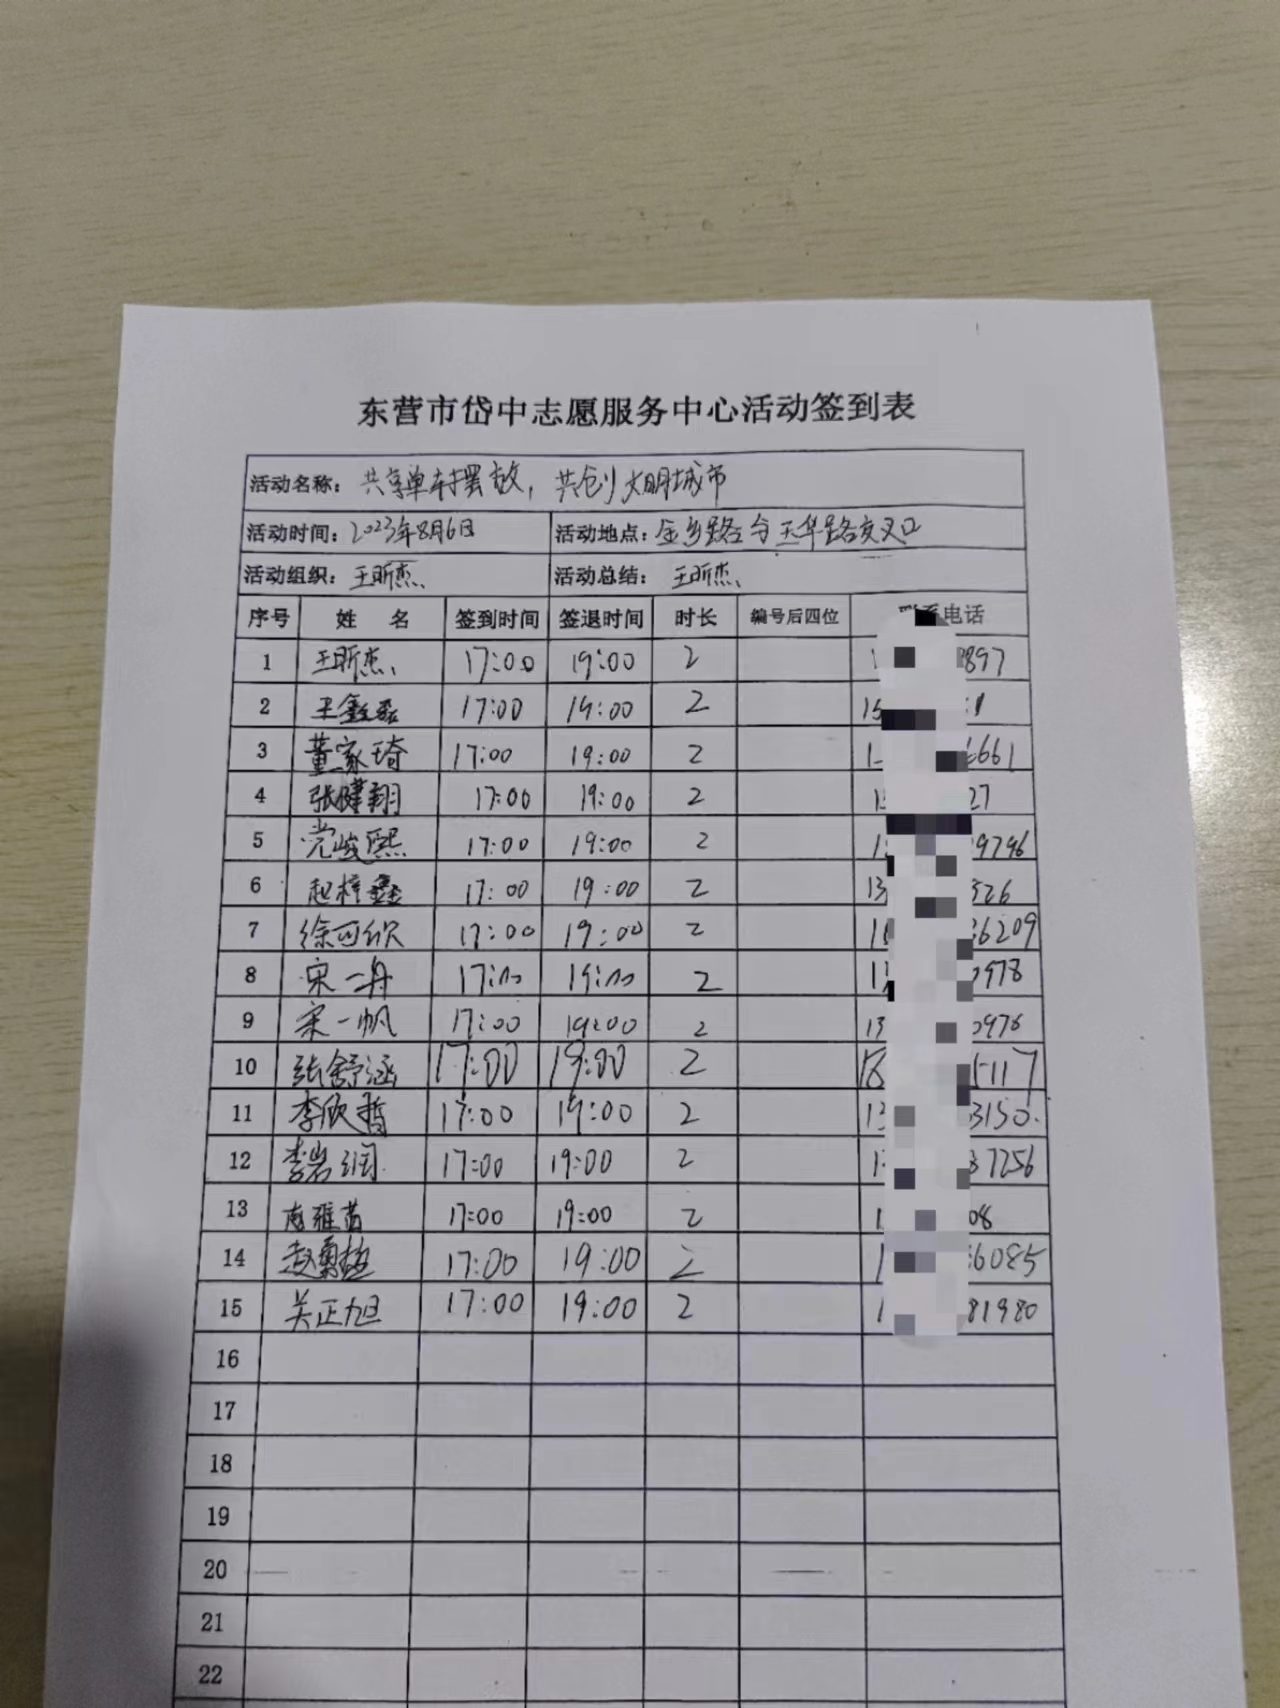 东营市岱中志愿服务中心活动签到表
活动名称：共享单车摆放，共创文明城市
活动时间：2023年8月6日 活动地点：金乡路与玉华路交叉口
活动组织：王昕杰 活动总结：王昕杰
序号 姓 名 签到时间 签退时间 时长 编号后四位 电话
1 王昕杰 17:00 19:00 2 897
2 王鑫磊 17:00 19:00 2 15 1
3 董家琦 17:00 19:00 2 1 6661
4 张健翔 17:00 19:00 2 27
5 党峻熙 17:00 19:00 2 1 9796
6 赵梓鑫 17:00 19:00 2 13 326
7 徐 17:00 19:00 2 1 36209
8 宋一舟 17:00 19:00 2 1 0978
9 宋一帆 17:00 19:00 2 13 0978
10 张舒涵 17:00 19:00 2 18 117
11 李欣哲 17:00 19:00 2 13 3150
12 李岩润 17:00 19:00 2 1 37256
13 雅茜 17:00 19:00 2 1 08
14 赵勇 17:00 19:00 2 1 6085
15 关正旭 17:00 19:00 2 1 81980
16
17
18
19
20
21
22